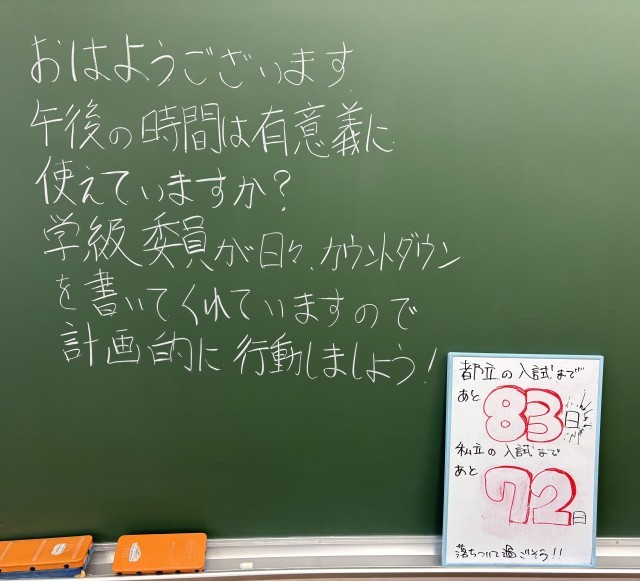 おはようございます
午後の時間は有意義に
使えていますか?
学級委員が日々、カウントダウン
を書いてくれていますので
計画的に行動しましょう!
都立の入試まで
あと
83日
私立の入試まで
あと
72日
落ちついて過ごそう!!